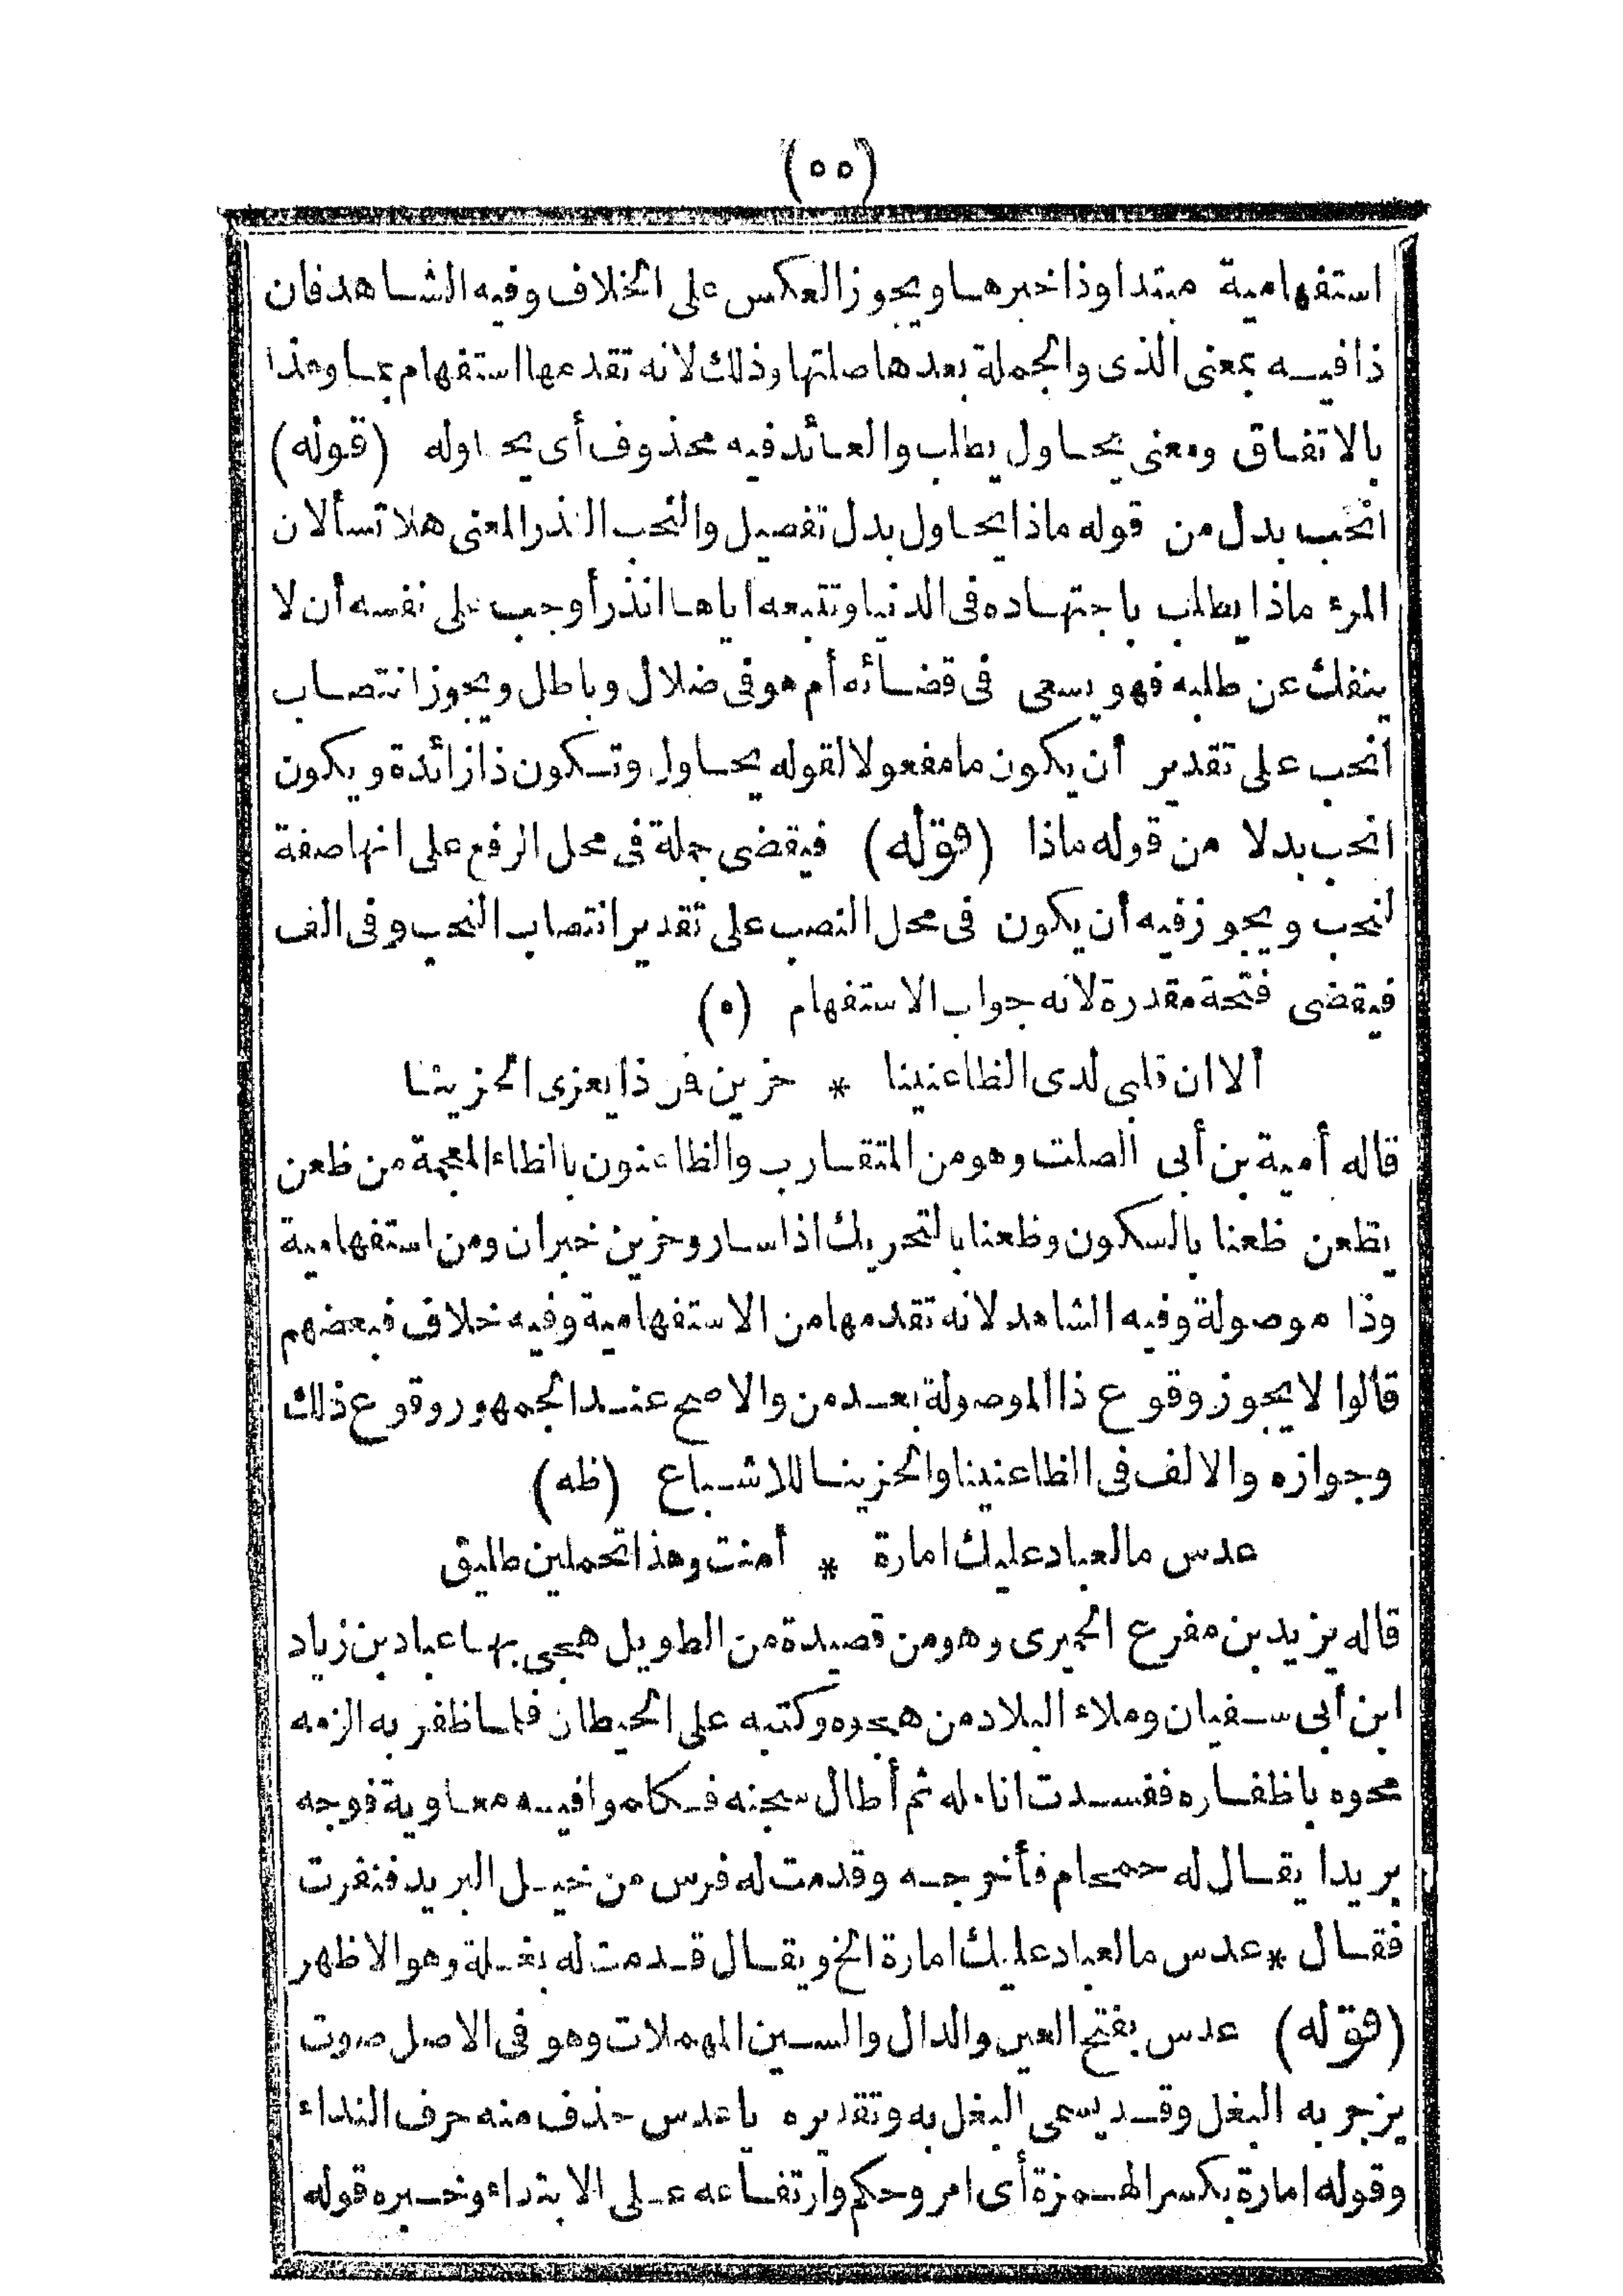 (٥٥)
استفهامية مبتدا وذا خبرها ويجوز العكس على الخلاف وفيه الشاهد فان
ذا فيه بمعنى الذى والجملة بعدها صلتها وذلك لانه تقدمها استفهام بما وهذا
بالاتفاق ومعنى يحاول يطلب والعائد فيه محذوف أى يحاوله (قوله)
انحب بدل من قوله ماذا يحاول بدل تفصيل والنحب النذر المعنى هلا تسألان
المرء ماذا يطلب باجتهاده فى الدنيا وتتبعه اياها انذر أوجب على نفسه أن لا
ينفك عن طلبه فهو يسعى فى قضائه أم هو فى ضلال وباطل ويجوز انتصاب
انحب على تقدير أن يكون ما مفعولا لقوله يحاول وتكون ذا زائدة ويكون
انحب بدلا من قوله ماذا (قوله) فيقضى جملة فى محل الرفع على انها صفة
لنحب ويجوز فيه أن يكون فى محل النصب على تقدير انتصاب النحب وفى الف
فيقضى فتحة مقدرة لانه جواب الاستفهام (ه)
ألا ان قلبى لدى الظاعنينا * حزين فمن ذا يعزى الحزينا
قاله أمية بن أبى الصلت وهو من المتقارب والظاعنون بالظاء المعجمة من ظعن
يظعن ظعنا بالسكون وظعنا بالتحريك اذا سار وحزين خبر ان ومن استفهامية
وذا موصولة وفيه الشاهد لانه تقدمها من الاستفهامية وفيه خلاف فبعضهم
قالوا لا يجوز وقوع ذا الموصولة بعد من والاصح عند الجمهور وقوع ذلك
وجوازه والالف فى الظاعنينا والحزينا للاشباع (ظه)
عدس ما لعباد عليك امارة * أمنت وهذا تحملين طليق
قاله يزيد بن مفرع الحميرى وهو من قصيدة من الطويل هجى بها عباد بن زياد
ابن أبى سفيان وملاء البلاد من هجوه وكتبه على الحيطان فلما ظفر به الزمه
محوه باظفاره ففسدت انامله ثم أطال سجنه فكلموا فيه معاوية فوجه
بريدا يقال له حمحام فأخرجه وقدمت له فرس من خيل البريد فنفرت
فقال * عدس ما لعباد عليك امارة الخ ويقال قدمت له بغلة وهو الاظهر
(قوله) عدس بفتح العين والدال والسين المهملات وهو فى الاصل صوت
يزجر به البغل وقد يسمى البغل به وتقديره يا عدس حذف منه حرف النداء
وقوله امارة بكسر الهمزة أى امر وحكم وارتفاعه على الابتداء وخبره قوله